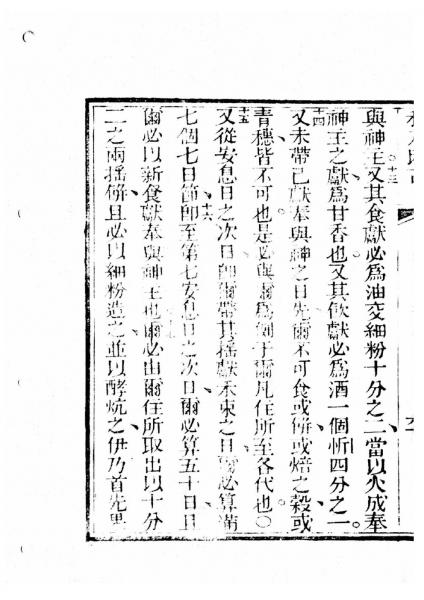 與神主又其食獻必為油交細粉十分之二當以火成奉
十三
神主之獻為甘香也又其飲獻必為酒一個忻四分之一
十四
又未帶己獻奉與神之日先爾不可食或餅或焙之穀或
青穗皆不可也是必與爾為例于爾凡住所至各代也〇
十五
又從安息日之次日即爾帶其搖獻禾束之日爾必算滿
七個七日節即至第七安息日之次日爾必算五十日且
十六
爾必以新食獻奉與神主也爾必由爾住所取出以十分
二之兩搖餅且必以細粉造之並以酵炕之伊乃首先思